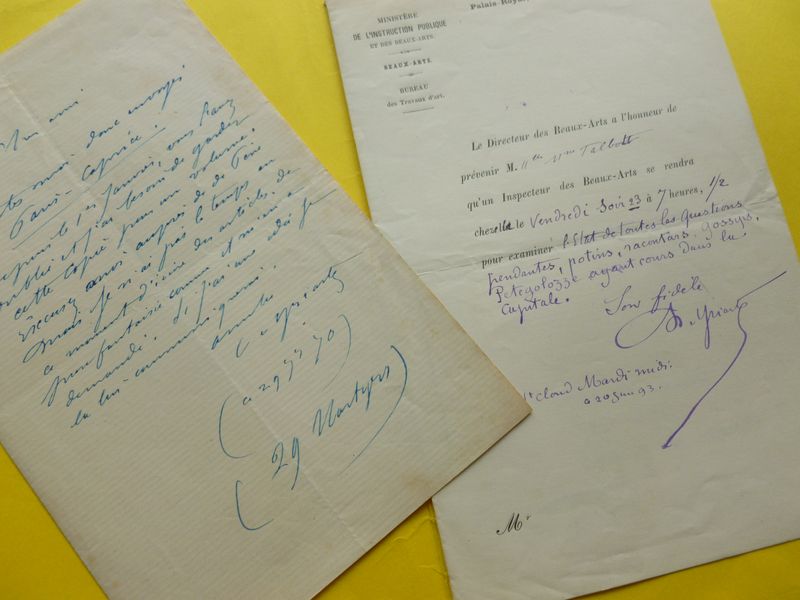 mon ami
donc envoyer
Paris-Caprice.
pour le 1er Janvier, vous l'avez
oublié et j'ai besoin de garder
cette copie pour un volume.
Excusez-moi auprès de
mais je n'ai pas le temps en
ce moment d'écrire des articles de
pure fantaisie comme
demandé. Si j'ai une idée je
la lui communiquerai.
amitiés
Ch Yriarte
(29 Martyrs)
MINISTÈRE
DE L'INSTRUCTION PUBLIQUE
ET DES BEAUX-ARTS.
BEAUX-ARTS.
BUREAU
des Travaux d'art.
Palais-Royal,
Le Directeur des Beaux-Arts a l'honneur de
prévenir M. Talbott
qu'un Inspecteur des Beaux-Arts se rendra
chez elle le Vendredi Soir 23 à 7 heures, 1/2
pour examiner l'Etat de toutes les Questions
pendantes, potins, racontars, gossyps,
Petegolozze ayant cours dans la
Capitale.
Son fidèle
Yriarte
St Cloud Mardi midi.
20 93.
Mr